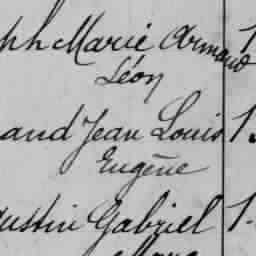 ph Marie Armand
Léon
and Jean Louis 1
Eugène
ustin Gabriel 1